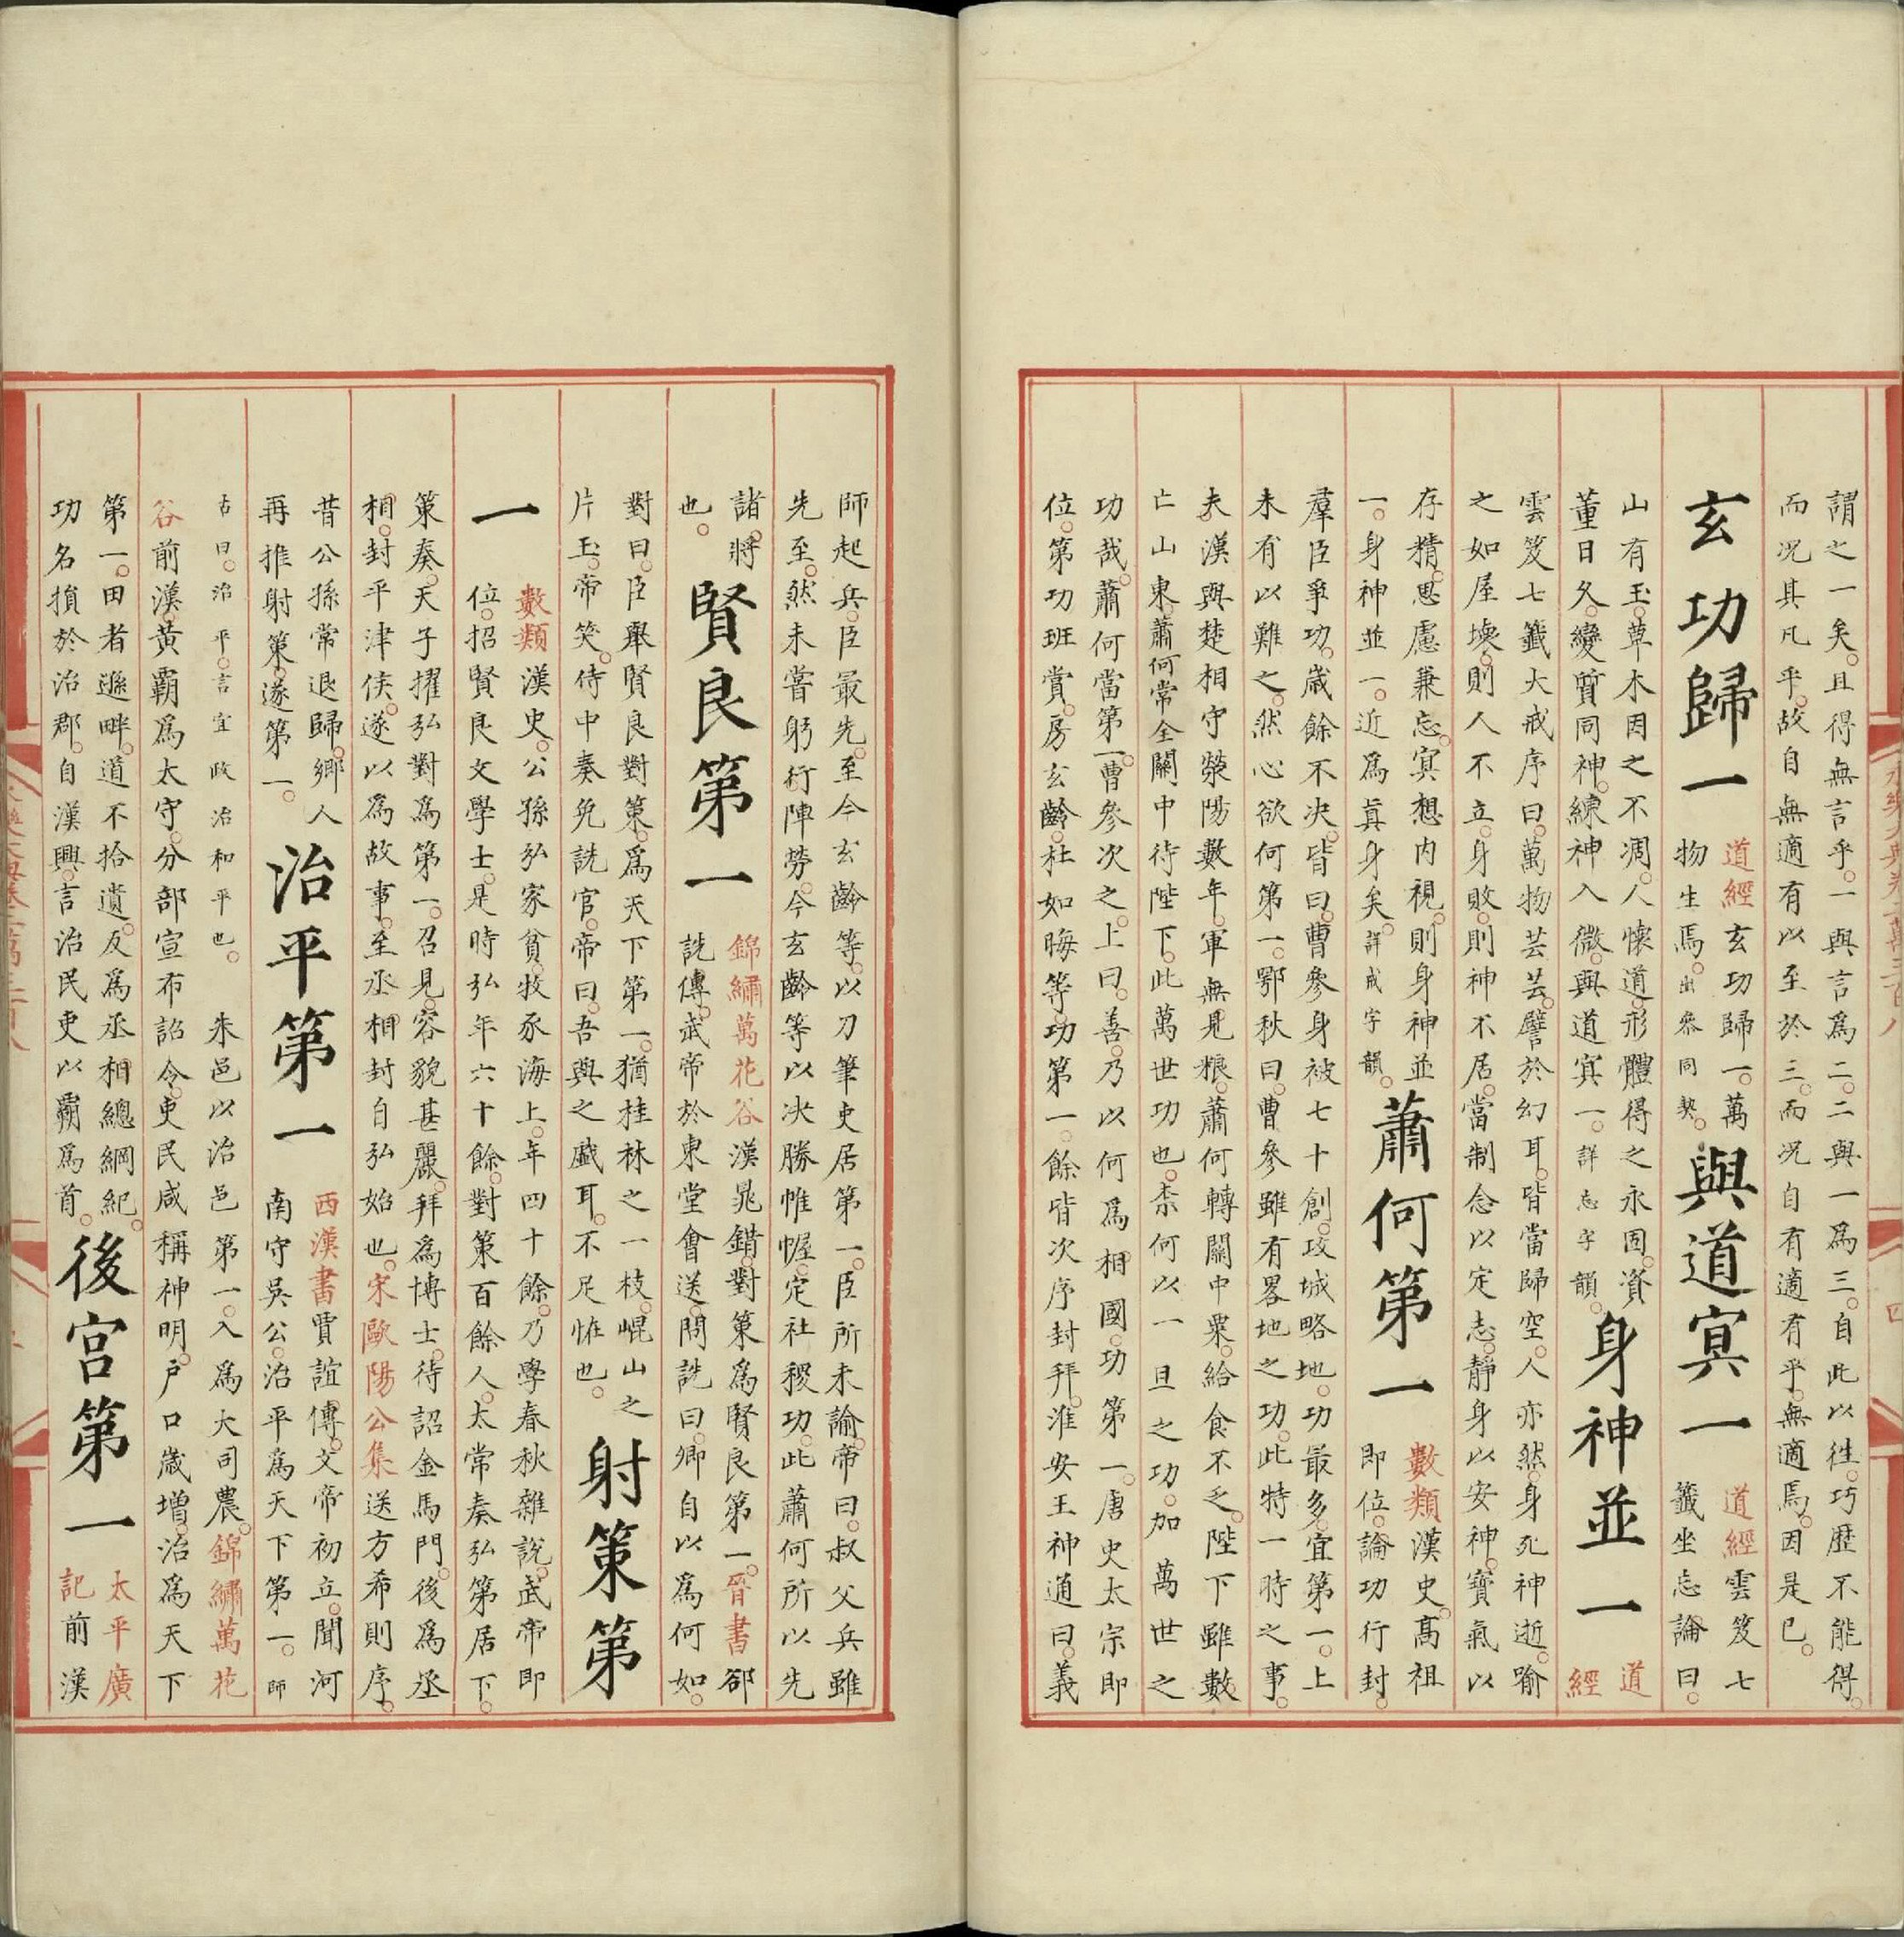 謂之一矣。且得無言乎。一與言爲二。二與一爲三。自此以往。巧歷不能得。
而况其凡乎。故自無適有以至於三。而况自有適有乎。無適焉。因是已。
玄功歸一
道經玄功歸一。萬
物生焉。出參同契。
與道㝠一
道經雲笈七
籤坐忘論曰。
山有玉。草木因之不凋。人懷道。形體得之永固。資
董日久。變質同神。練神入微。與道㝠一。詳忘字韻。
身神並一
道
經
雲笈七籤大戒序曰。萬物芸芸。譬於幻耳。皆當歸空。人亦然。身死神逝。喻
之如屋壞。則人不立。身敗。則神不居。當制念以定志。靜身以安神。寶氣以
存精。思慮兼忘。㝠想内視。則身神並
一。身神並一。近爲真身矣。詳戒字韻。
蕭何第一
數類漢史。髙祖
即位。論功行封。
羣臣爭功。歳餘不决。皆曰。曹參身被七十創。攻城略地。功最多。宜第一。上
未有以難之。然心欲何第一。鄂秋曰。曹參雖有畧地之功。此特一時之事。
夫漢與楚相守滎陽數年。軍無見粮。蕭何轉關中粟。給食不乏。陛下雖數
亡山東。蕭何常全關中待陛下。此萬世功也。柰何以一旦之功。加萬世之
功哉。蕭何當第一。曹參次之。上曰。善。乃以何爲相國。功第一。唐史太宗即
位。第功班賞。房玄齡。杜如晦等。功第一。餘皆次序封拜。淮安王神通曰。義
師起兵。臣最先。至今玄齡等。以刀筆吏居第一。臣所未諭。帝曰。叔父兵雖
先至。然未嘗躬行陣勞。今玄齡等以决勝帷幄。定社稷功。此蕭何所以先
諸將
也。
賢良第一
錦繡萬花谷漢晁錯。對策爲賢良第一。晉書郤
詵傳。武帝於東堂會送。問詵曰。卿自以爲何如。
對曰。臣舉賢良對策。爲天下第一。猶桂林之一枝。崐山之
片玉。帝笑。侍中奏免詵官。帝曰。吾與之戲耳。不足恠也。
射策第
一
數類漢史。公孫弘家貧。牧豕海上。年四十餘。乃學春秋雜說。武帝即
位。招賢良文學士。是時弘年六十餘。對策百餘人。太常奏弘第居下。
策奏。天子擢弘對爲第一。召見。容貌甚麗。拜爲博士。待詔金馬門。後爲丞
相。封平津侯。遂以爲故事。至丞相封自弘始也。宋歐陽公集送方希則序。
昔公孫常退歸。鄉人
再推射策。遂第一。
治平第一
西漢書賈誼傳。文帝初立。聞河
南守吳公。治平爲天下第一。師
古曰。治平。言宜政治和平也。朱邑以治邑第一。入爲大司農。錦繡萬花
谷前漢。黃霸爲太守。分部宣布詔令。吏民咸稱神明。户口歳增。治爲天下
第一。田者遜畔。道不拾遺。及爲丞相。總綱紀。
功名損於治郡。自漢興。言治民吏以霸爲首。
後宮第一
太平廣
記前漢